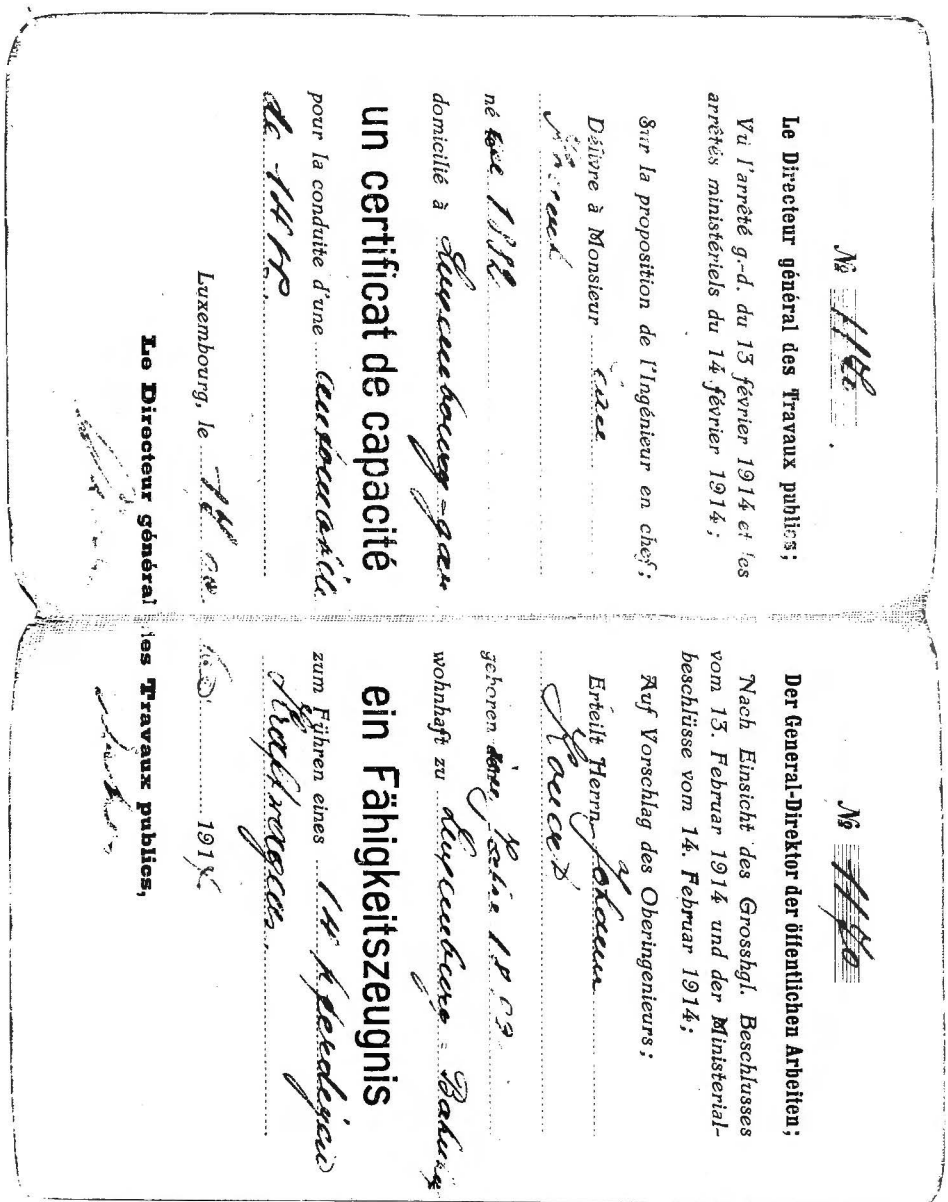 № 1170
Le Directeur général des Travaux publics;
Vu l'arrêté g.-d. du 13 février 1914 et les
arrêtés ministériels du 14 février 1914;
Sur la proposition de l'Ingénieur en chef;
Délivre à Monsieur
né 1882
domicilié à Luxembourg-gare
un certificat de capacité
pour la conduite d'une automobile
de 14 HP
Luxembourg, le
Le Directeur général des Travaux publics,
№ 1170
Der General-Direktor der öffentlichen Arbeiten;
Nach Einsicht des Grosshgl. Beschlusses
vom 13. Februar 1914 und der Ministerial-
beschlüsse vom 14. Februar 1914;
Auf Vorschlag des Oberingenieurs;
Erteilt Herrn Johann
geboren im Jahre
wohnhaft zu Luxemburg-
ein Fähigkeitszeugnis
zum Führen eines 14 pferdigen
Kraftwagens.
191